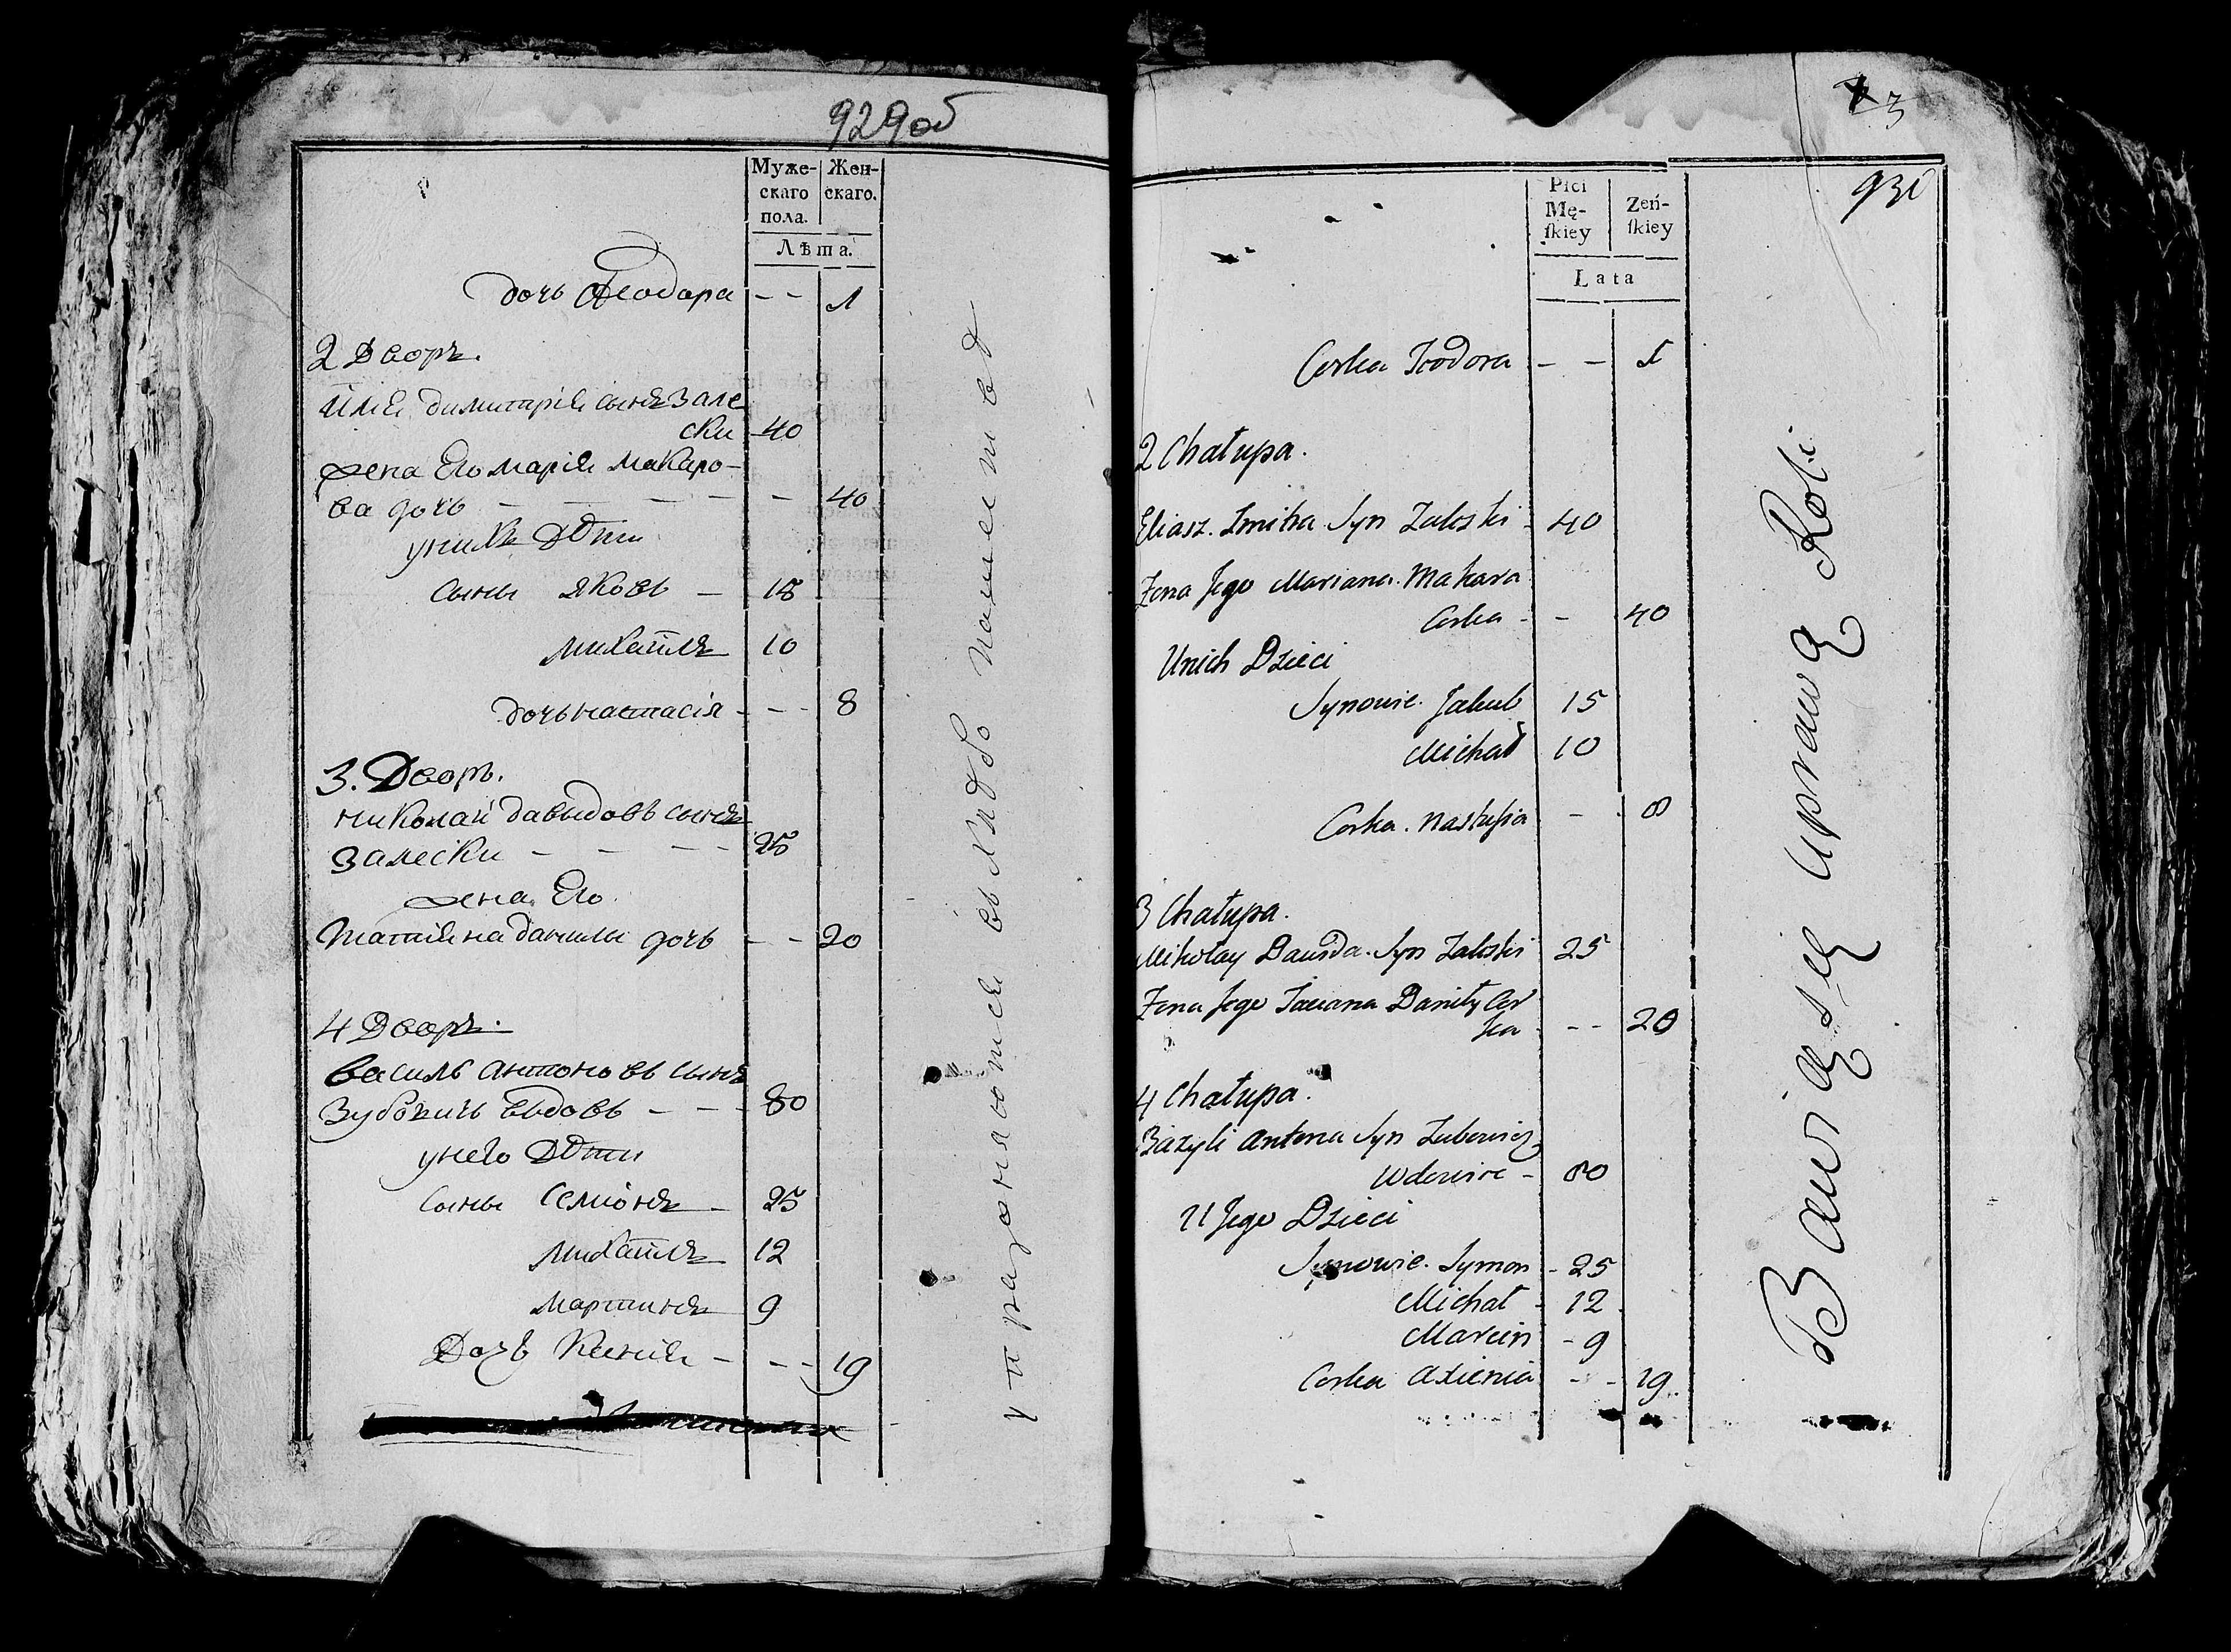 929об
Муже- Жен-
скаго скаго.
пола.
Лѣта.
дочь Ѳеодора - - 1
2 Дворъ.
Илiя димитрiя сынъ Зале
ски 40
жена Его марiя Макаро-
ва дочь - - - - - 40
у нихъ дѣти
сыны Яковъ - 15
михайлъ 10
дочь настасiя - - - 8
3. Дворъ.
николай давыдовъ сынъ
Залески - - - - 25
жена Его
татiяна данилы дочь - - 20
4 Дворъ.
василь антоновъ сынъ
Зубовичь вдовъ - - - 80
у него дѣти
сыны Семiонъ - 25
михайлъ 12
мартинъ 9
Дочь Ксенiя - - - 19
упражняются въ хлѣбо пашествѣ
3
930
Płci
Mę- Zeń-
ſkiey ſkiey
Lata
Corka Teodora - - 1
2 Chałupa.
Eliasz. Dmitra Syn Zaleski - 40
Zona Jego Mariana. Makara
Corka - - 40
Unich Dzieci
Synowie. Jakub 15
Michał 10
Corka. Nastasia - 8
3 Chałupa.
Mikołay Dawida. Syn Zaleski 25
Zona Jego Taciana Daniły Cor
ka - - 20
4 Chałupa.
Bazyli Antona Syn Zubowicz
Wdowiec - 80
U Jego Dzieci
Synowie. Symon - 25
Michał - 12
Marcin - 9
Corka Axienia - - 19
Bawią się uprawą Roli